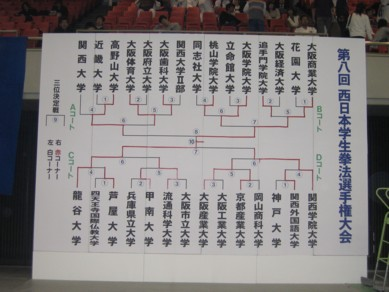 第八回 西日本学生拳法選手権大会
大阪商業大学
花園大学
大阪経済大学
追手門学院大学
大阪学院大学
立命館大学
桃山学院大学
同志社大学
関西大学Ⅱ部
大阪歯科大学
大阪府立大学
大阪体育大学
高野山大学
近畿大学
関西大学
Aコート
Bコート
三位決定戦
9
10
Cコート
Dコート
右 赤コーナー
左 白コーナー
関西学院大学
関西外国語大学
神戸大学
岡山商科大学
京都産業大学
大阪工業大学
大阪産業大学
大阪市立大学
流通科学大学
甲南大学
兵庫県立大学
芦屋大学
四天王寺国際仏教大学
龍谷大学